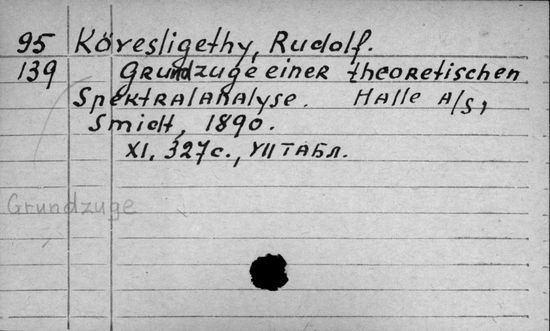 95 Köresligethy, Rudolf.
139 Grundzuge einer theoretischen
Spektralanalyse. Halle a/s,
Smidt, 1890.
XI, 327с., VII табл.
Grundzuge